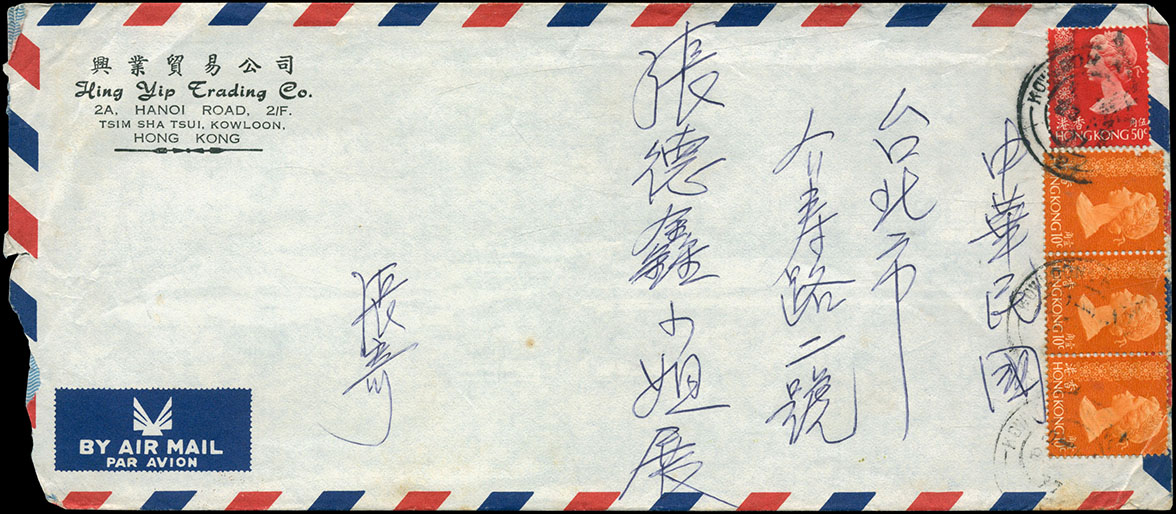 興業貿易公司
Hing Yip Trading Co.
2A, HANOI ROAD, 2/F.
TSIM SHA TSUI, KOWLOON,
HONG KONG
中華民國
台北市
介寿路二號
張德鑫小姐展
張寄
BY AIR MAIL
PAR AVION
香港
伍角
HONG KONG 50c
香港
壹角
HONG KONG 10c
香港
壹角
HONG KONG 10c
香港
HONG KONG 10c
KOWLOON